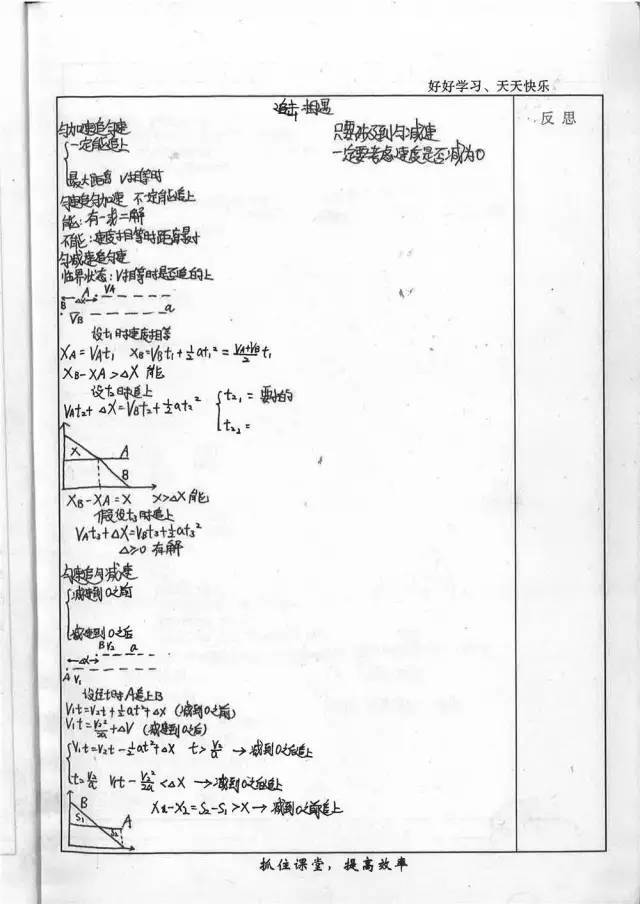 好好学习、天天快乐
追击相遇
反思
匀加速追匀速
一定能追上
最大距离 V相等时
只要涉及到匀减速
一定要考虑速度是否减为0
匀速追匀加速 不一定能追上
能：有一步二解
不能：速度相等时距离最小
匀减速追匀速
临界状态：V相等时是否追的上
B Δx A VA
VB a
设t₁时速度相等
XA=VAt₁ XB=VBt₁+½at₁²=(VA+VB)/2 t₁
XB-XA>ΔX 能
设t₂时追上
VAt₂+ΔX=VBt₂+½at₂² t₂₁= 要求的
t₂₂=
X A
B
XB-XA=X X>ΔX 能
假设t₃时追上
VAt₃+ΔX=VBt₃+½at₃²
Δ≥0 有解
匀速追匀减速
减速到0之前
减速到0之后
B V₂ a
Δx
A V₁
设经t时A追上B
V₁t=V₂t+½at²+Δx (减到0之前)
V₁t=V₂²/2a+ΔV (减速到0之后)
V₁t=V₂t-½at²+Δx t>V₂/a →减到0之后追上
t=V₂/a V₁t-V₂²/2a<ΔX →减到0之后追上
B
S₁ S₂ A
X₁-X₂=S₂-S₁>X→减到0之前追上
抓住课堂，提高效率